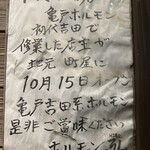 亀戸ホルモン
初代吉田で
修業した店主が
地元 町屋に
10月15日オープン
亀戸吉田系ホルモン
是非ご賞味ください
ホルモン